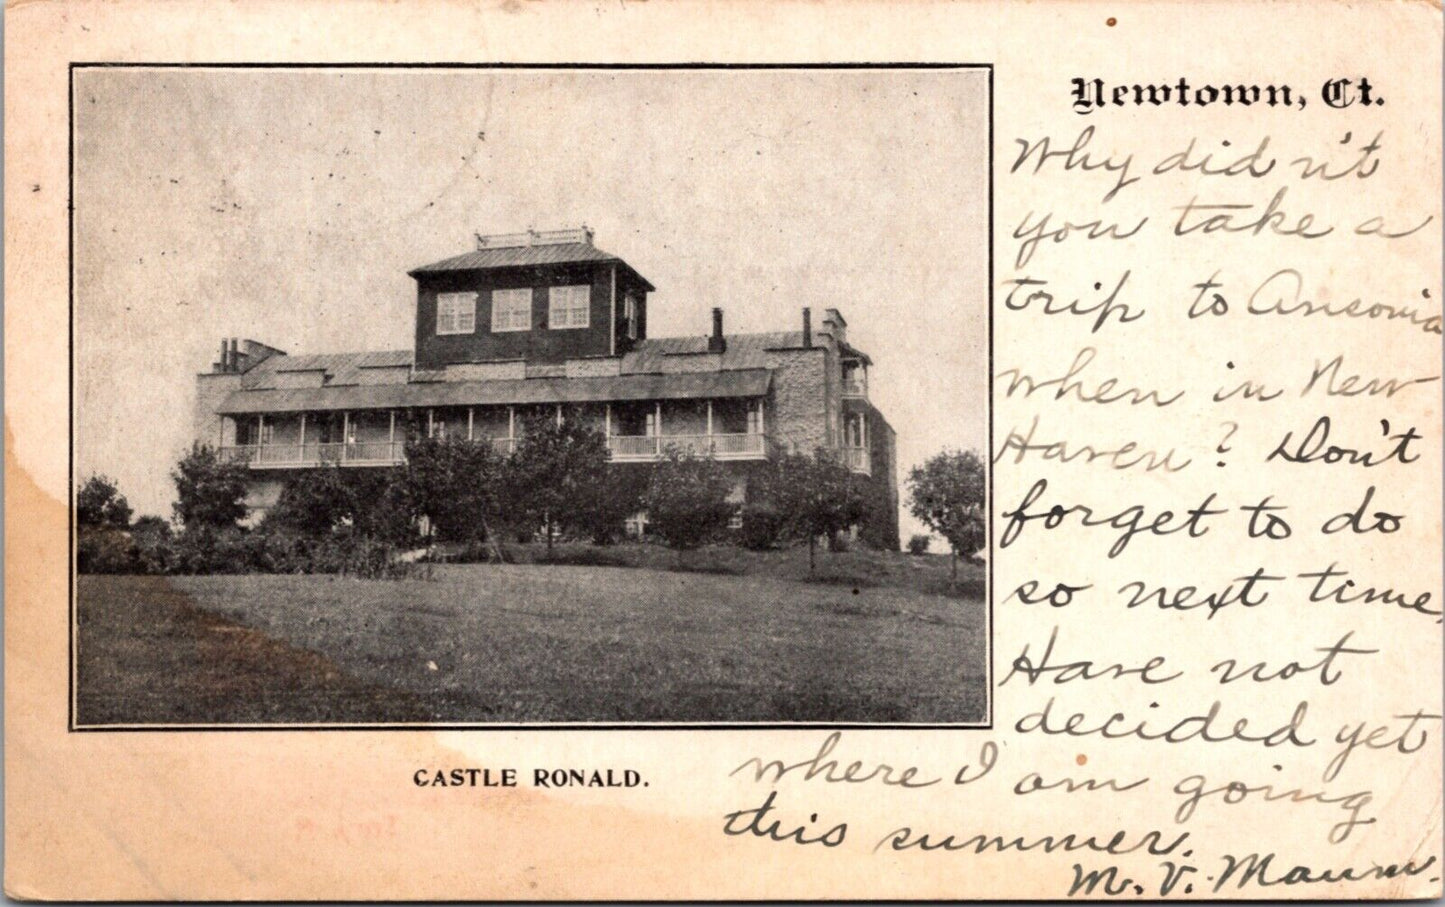 Newtown, Ct.
Why didn't
you take a
trip to Ansonia
when in New
Haven? Don't
forget to do
so next time.
Have not
decided yet
where I am going
this summer.
M. V.
CASTLE RONALD.